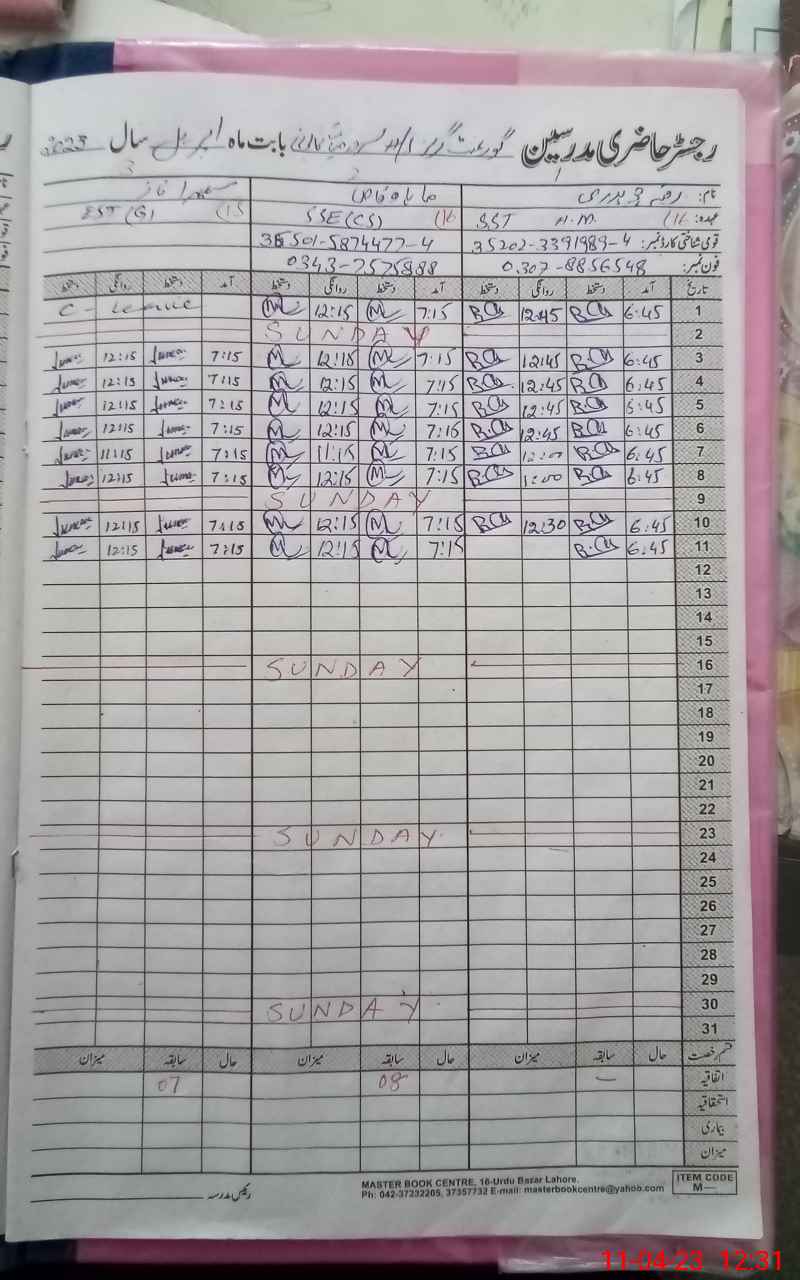 رجسٹر حاضری مدرسین گورنمنٹ گرلز بابت ماہ اپریل سال 2023
1 2 3
نام:
عہدہ: SST H.M. (16 SSE(CS) (16 EST (G) (15
قومی شناختی کارڈ نمبر: 35202-3391989-4 36501-5874477-4
فون نمبر: 0307-8856548 0343-7575888
تاریخ آمد دستخط روانگی دستخط آمد دستخط روانگی دستخط آمد دستخط روانگی دستخط
1 6:45 12:45 7:15 12:15 C-Leave
2 SUNDAY
3 6:45 12:45 7:15 12:15 7:15 12:15
4 6:45 12:45 7:15 12:15 7:15 12:15
5 6:45 12:45 7:15 12:15 7:15 12:15
6 6:45 12:45 7:16 12:15 7:15 12:15
7 6:45 12:00 7:15 11:15 7:15 11:15
8 6:45 1:00 7:15 12:15 7:15 12:15
9 SUNDAY
10 6:45 12:30 7:15 12:15 7:15 12:15
11 6:45 7:15 12:15 7:15 12:15
12
13
14
15
16 SUNDAY
17
18
19
20
21
22
23 SUNDAY
24
25
26
27
28
29
30 SUNDAY
31
قسم رخصت حال سابقہ میزان حال سابقہ میزان حال سابقہ میزان
اتفاقیہ – 08 07
استحقاقیہ
بیماری
میزان
رئیس مدرسہ
MASTER BOOK CENTRE, 16-Urdu Bazar Lahore.
Ph: 042-37232205, 37357732 E-mail: masterbookcentre@yahoo.com
ITEM CODE
M—
11-04-23 12:31